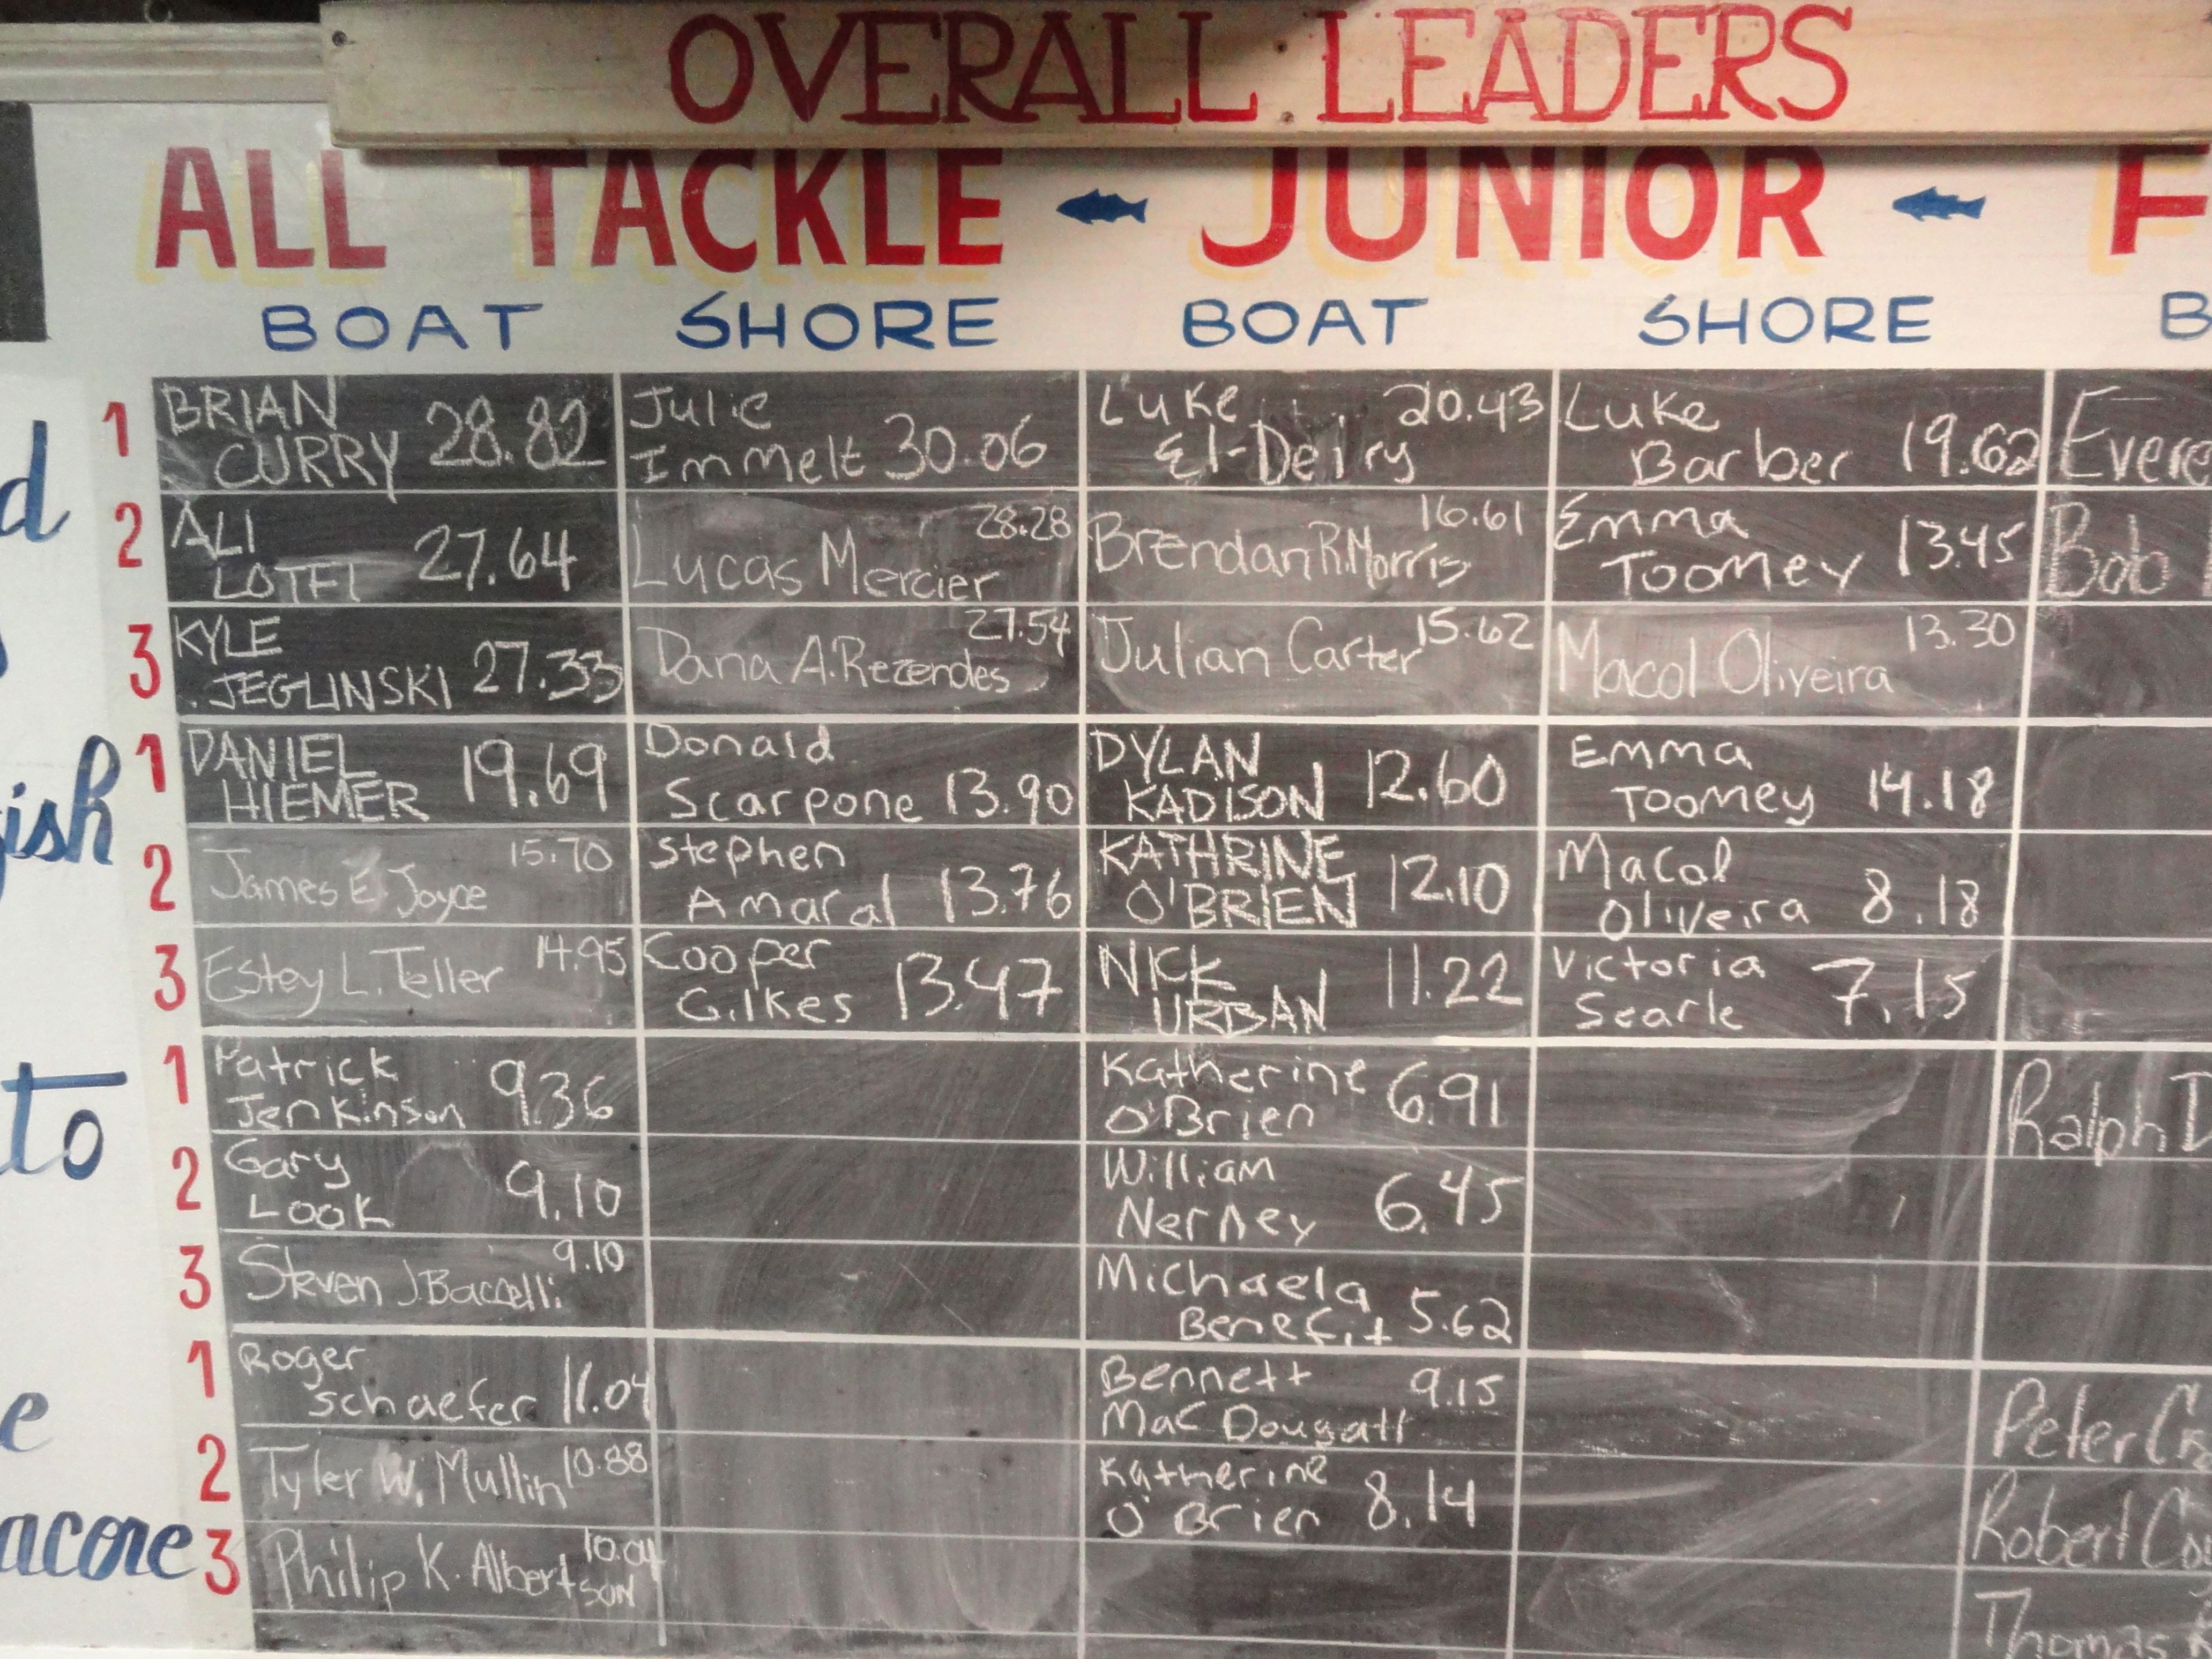 OVERALL LEADERS
ALL TACKLE JUNIOR F
BOAT SHORE BOAT SHORE B
d
1 BRIAN CURRY 28.82 Julie Immelt 30.06 Luke El-Deiry 20.43 Luke Barber 19.62 Evere
2 ALI LOTFI 27.64 Lucas Mercier 28.28 Brendan R. Morris 16.61 Emma Toomey 13.45 Bob
3 KYLE JEGLINSKI 27.33 Dana A. Rezendes 27.54 Julian Carter 15.62 Macol Oliveira 13.30
ish
1 DANIEL HIEMER 19.69 Donald Scarpone 13.90 DYLAN KADISON 12.60 Emma Toomey 14.18
2 James E Joyce 15.70 Stephen Amaral 13.76 KATHRINE O'BRIEN 12.10 Macol Oliveira 8.18
3 Estey L. Teller 14.95 Cooper Gilkes 13.47 NICK URBAN 11.22 Victoria Searle 7.15
to
1 Patrick Jenkinson 9.36 Katherine O'Brien 6.91 Ralph D
2 Gary Look 9.10 William Nerney 6.45
3 Steven J. Baccelli 9.10 Michaela Benefit 5.62
e
1 Roger Schaefer 11.04 Bennett MacDougall 9.15 Peter
2 Tyler W. Mullin 10.88 Katherine O'Brien 8.14 Robert Co
acore
3 Philip K. Albertson 10.04 Thomas